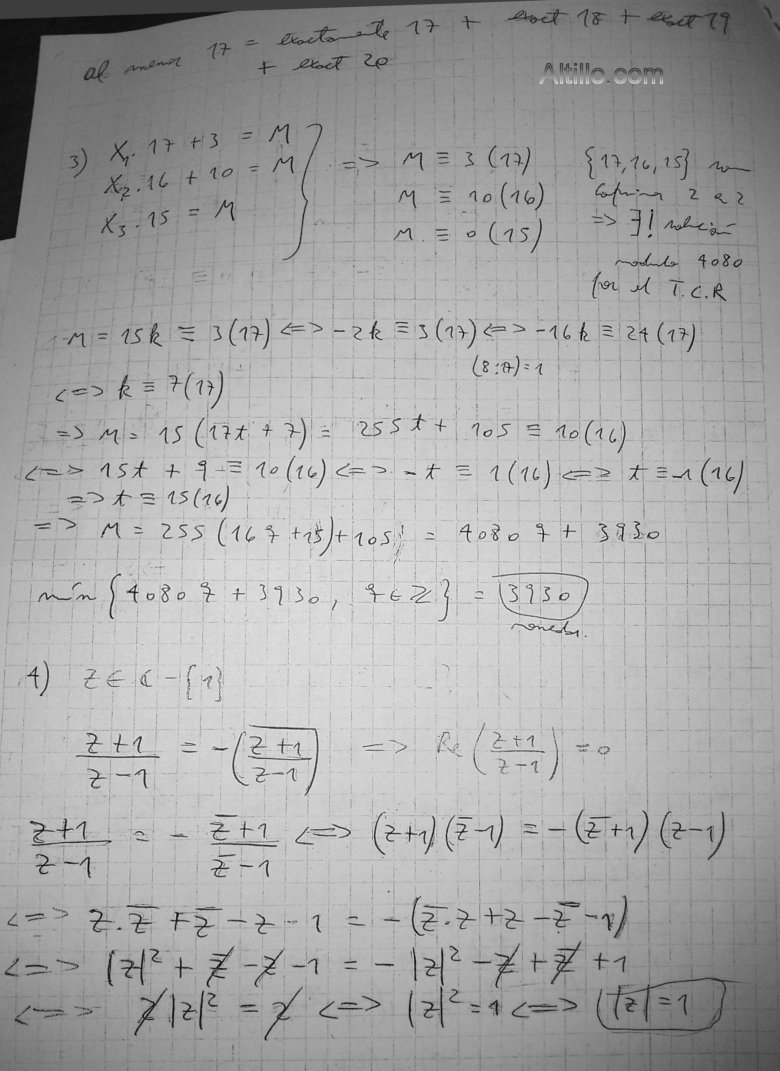 al menos 17 = exactamente 17 + exact 18 + exact 19
+ exact 20
Altillo.com
3) X₁.17 + 3 = M
X₂.16 + 10 = M
X₃.15 = M
=> M ≡ 3 (17)
M ≡ 10 (16)
M ≡ 0 (15)
{17,16,15} son
coprimos 2 a 2
=> ∃! solución
modulo 4080
por el T.C.R
M = 15k ≡ 3(17) <=> -2k ≡ 3(17) <=> -16k ≡ 24(17)
(8:17)=1
<=> k ≡ 7(17)
=> M = 15(17t + 7) = 255t + 105 ≡ 10(16)
<=> 15t + 9 ≡ 10(16) <=> -t ≡ 1(16) <=> t ≡ -1(16)
=> t ≡ 15(16)
=> M = 255(16q + 15) + 105 = 4080q + 3930
mín {4080q + 3930, q ∈ ℤ} = 3930
monedas.
4) z ∈ ℂ - {1}
(z+1)/(z-1) = -(\overline{(z+1)/(z-1)}) => Re((z+1)/(z-1)) = 0
(z+1)/(z-1) = - (z̄+1)/(z̄-1) <=> (z+1)(z̄-1) = -(z̄+1)(z-1)
<=> z.z̄ + z̄ - z - 1 = -(z̄.z + z - z̄ - 1)
<=> |z|² + z̄ - z - 1 = - |z|² - z + z̄ + 1
<=> 2|z|² = 2 <=> |z|² = 1 <=> |z| = 1